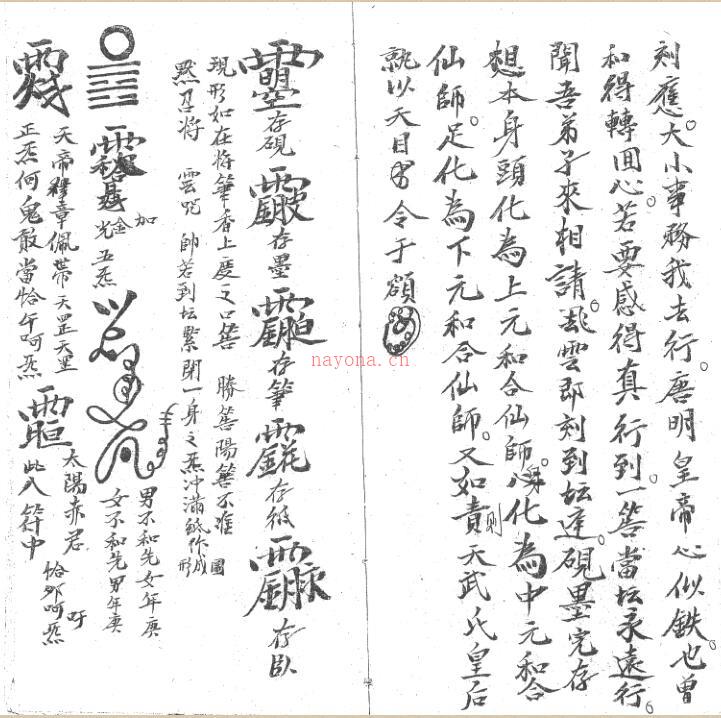 刻應。大小事務我去行。唐明皇帝心似鉄。也曾
和得轉囬心。若要感得真行到。一筶當坛永遠行。
聞吾弟子來相請。乩雲即刻到坛逹。硯墨完存
想本身頭化為上元和合仙師。身化為中元和合
仙師。足化為下元和合仙師。又如責則天武氏皇后
就以天目 令于額
存硯
存墨
存筆
存紙
存臥
現形如在将筆香上度之口筶 勝筶陽筶不準 圖
黙召将 雲咒 帥若到坛緊閉一身之炁冲滿紙作成形
加
光金五炁
男不和先女年庚
女不和先男年庚
天帝釋章佩帶天罡天里
正炁何鬼敢當恰午呵炁
太陽赤君 吁
恰卯呵炁
此入符中
nayona.cn